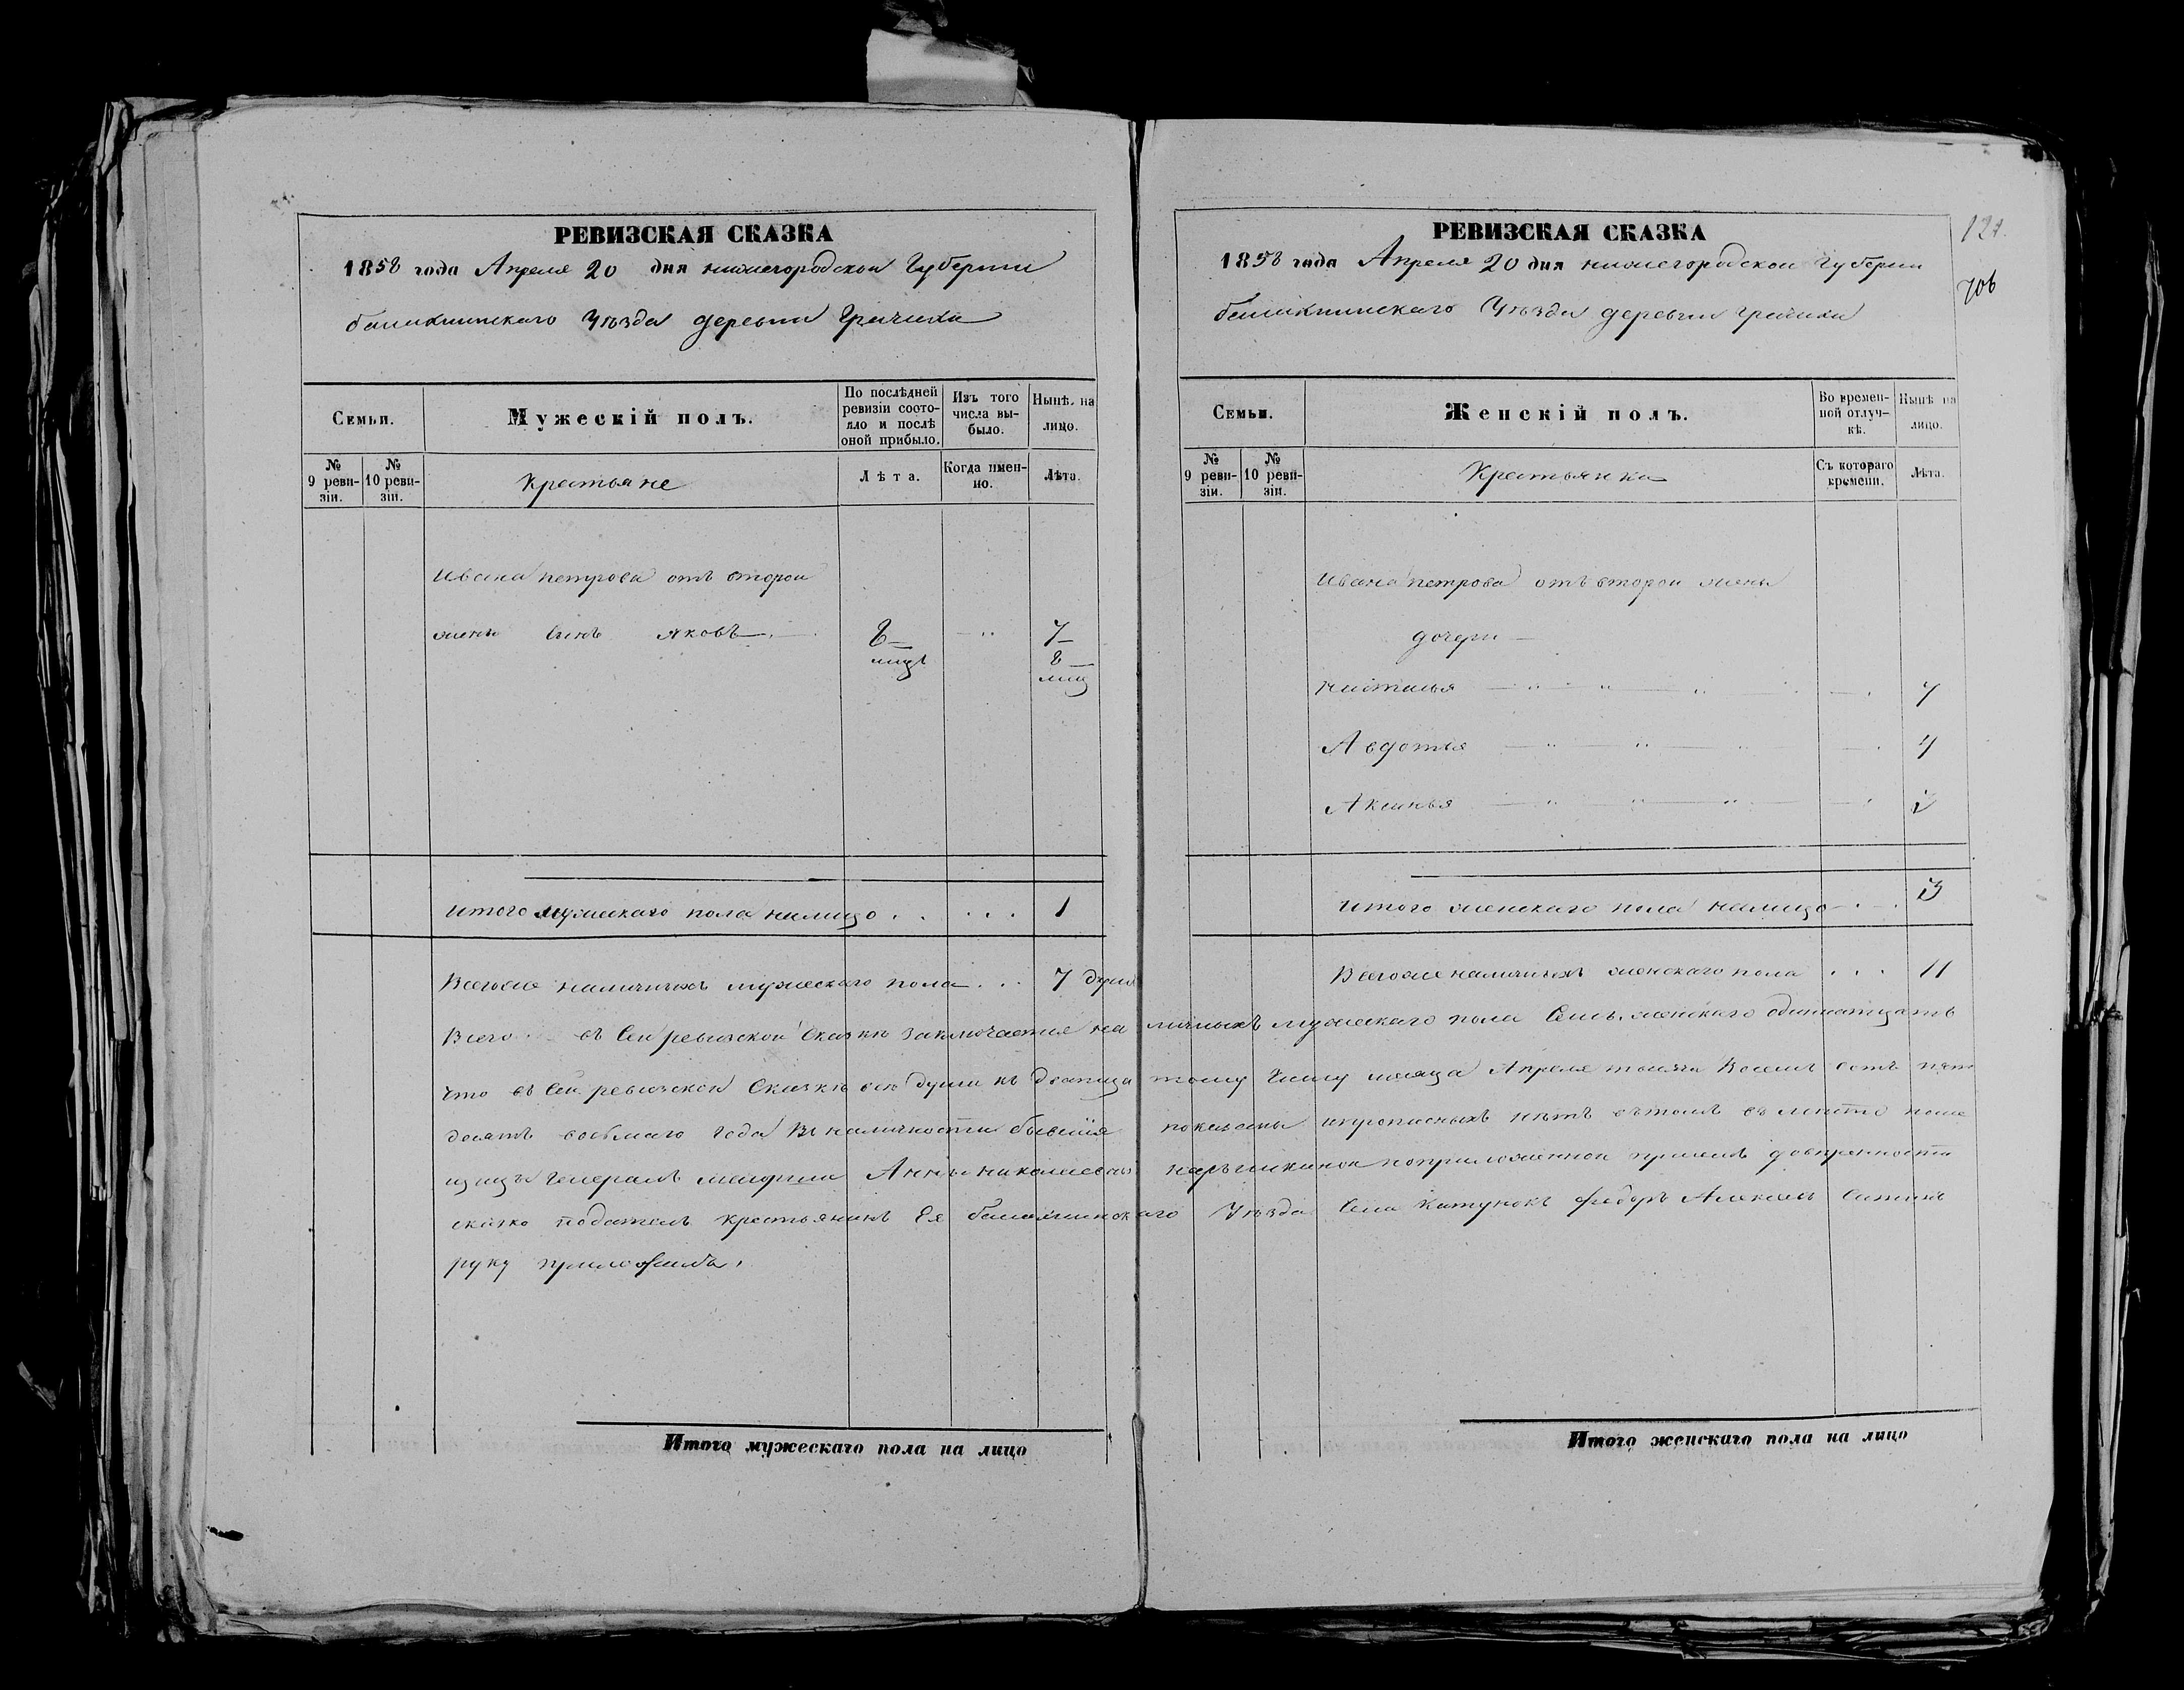 РЕВИЗСКАЯ СКАЗКА
1858 года Апреля 20 дня нижегородской Губернии
балахнинскаго Уѣзда деревни Гричиха
Семьи.
Мужескій полъ.
По послѣдней ревизіи состояло и послѣ оной прибыло.
Изъ того числа выбыло.
Нынѣ на лицо.
№ 9 ревизіи.
№ 10 ревизіи.
Крестьяне
Лѣта.
Когда именно.
Лѣта.
Ивана петрова отъ второй
жены Сынъ яковъ 7
8 лиц
Итого мужескаго пола налицо 1
Всегоже наличныхъ мужескаго пола 7 душъ
Итого мужескаго пола на лицо
РЕВИЗСКАЯ СКАЗКА
1858 года Апреля 20 дня нижегородской губернии
балахнинскаго Уѣзда деревни Гричиха
121.
706
Семьи.
Женскій полъ.
Во временной отлучкѣ.
Нынѣ на лицо.
№ 9 ревизіи.
№ 10 ревизіи.
Крестьянка
Съ котораго времени.
Лѣта.
Ивана петрова отъ второй жены
дочери
Наталья 7
Авдотья 4
Аксинья
Итого женскаго пола налицо 3
Всегоже наличныхъ женскаго пола 11
Всего въ Сей ревизской Сказкѣ заключается наличныхъ мужескаго пола Семь, женскаго одиннатцать
что въ Сей ревизской Сказкѣ всѣ души къ дватцатому Числу месяца Апреля тысяча Восемь сотъ пять
десятъ восьмаго года въ наличности бывшія показаны ипрописныхъ нѣтъ вътомъ въ место поме
щицы Генералъ маіорши Анны николаевны нарышкиной поприложенной присемъ довѣренности
скаско податель крестьянинъ Ея балахнинскаго Уѣзда Села Катунокъ федоръ Алексеевъ
руку приложилъ
Итого женскаго пола на лицо